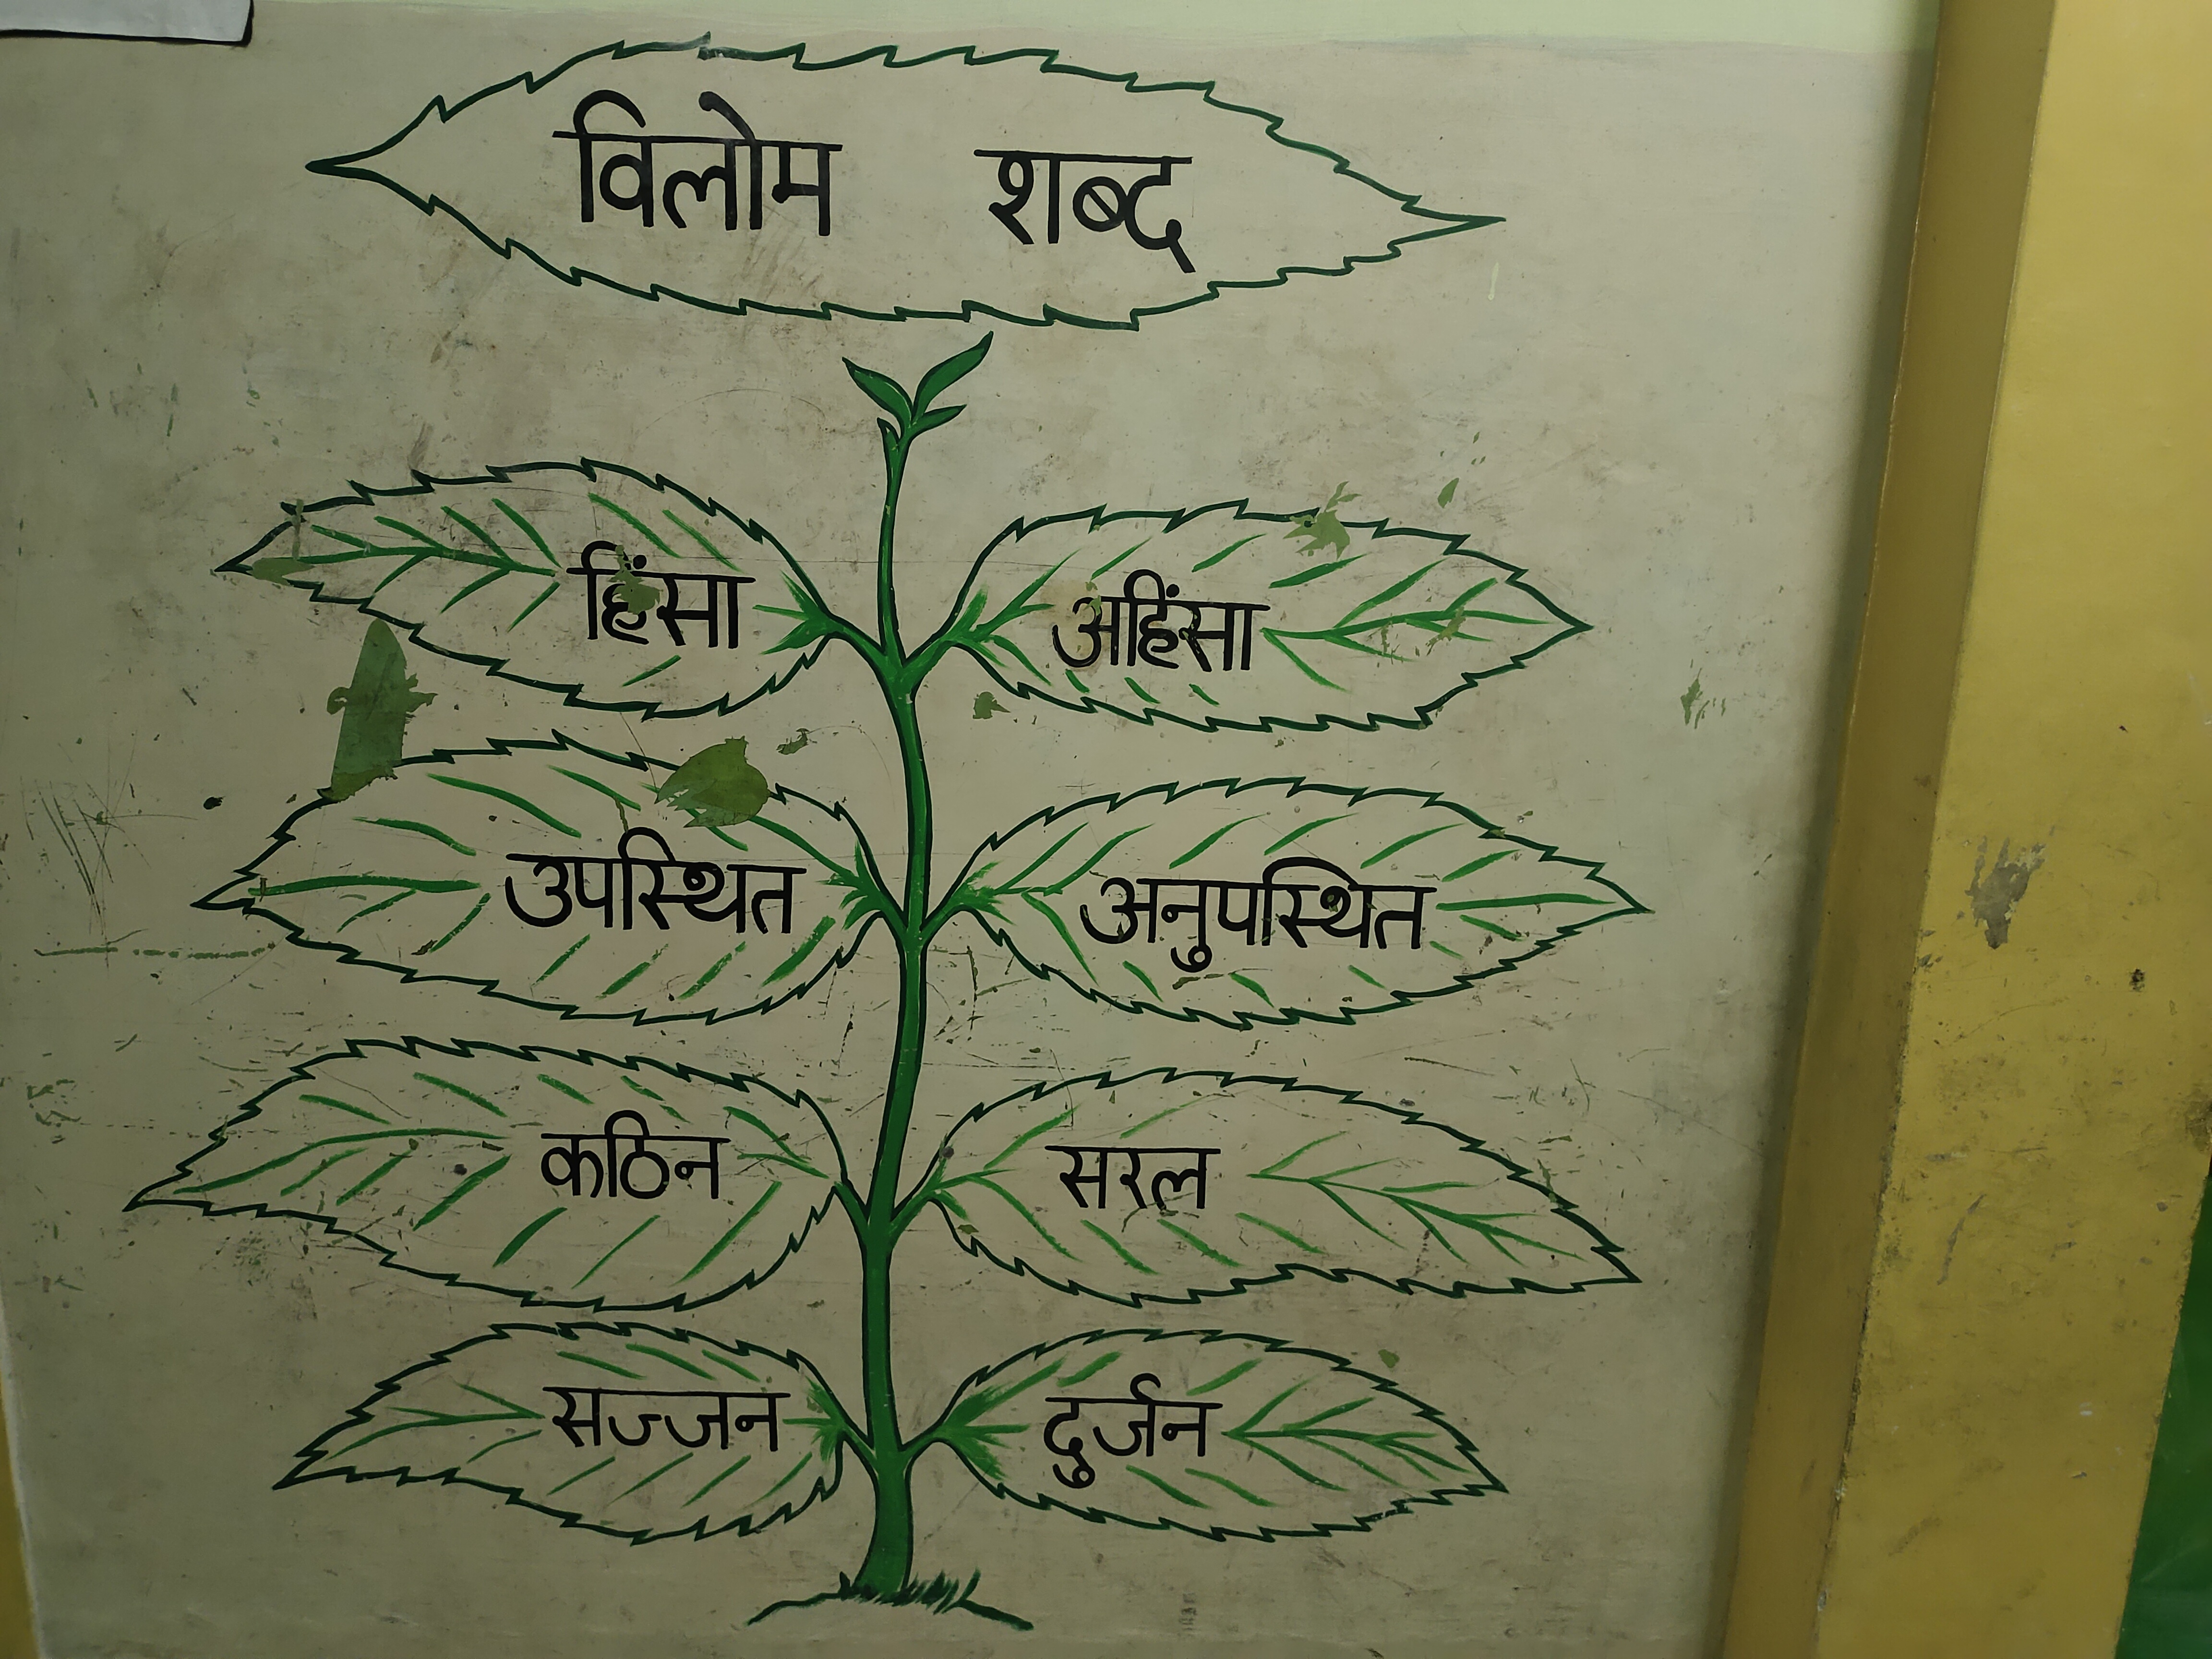 विलोम शब्द
हिंसा अहिंसा
उपस्थित अनुपस्थित
कठिन सरल
सज्जन दुर्जन